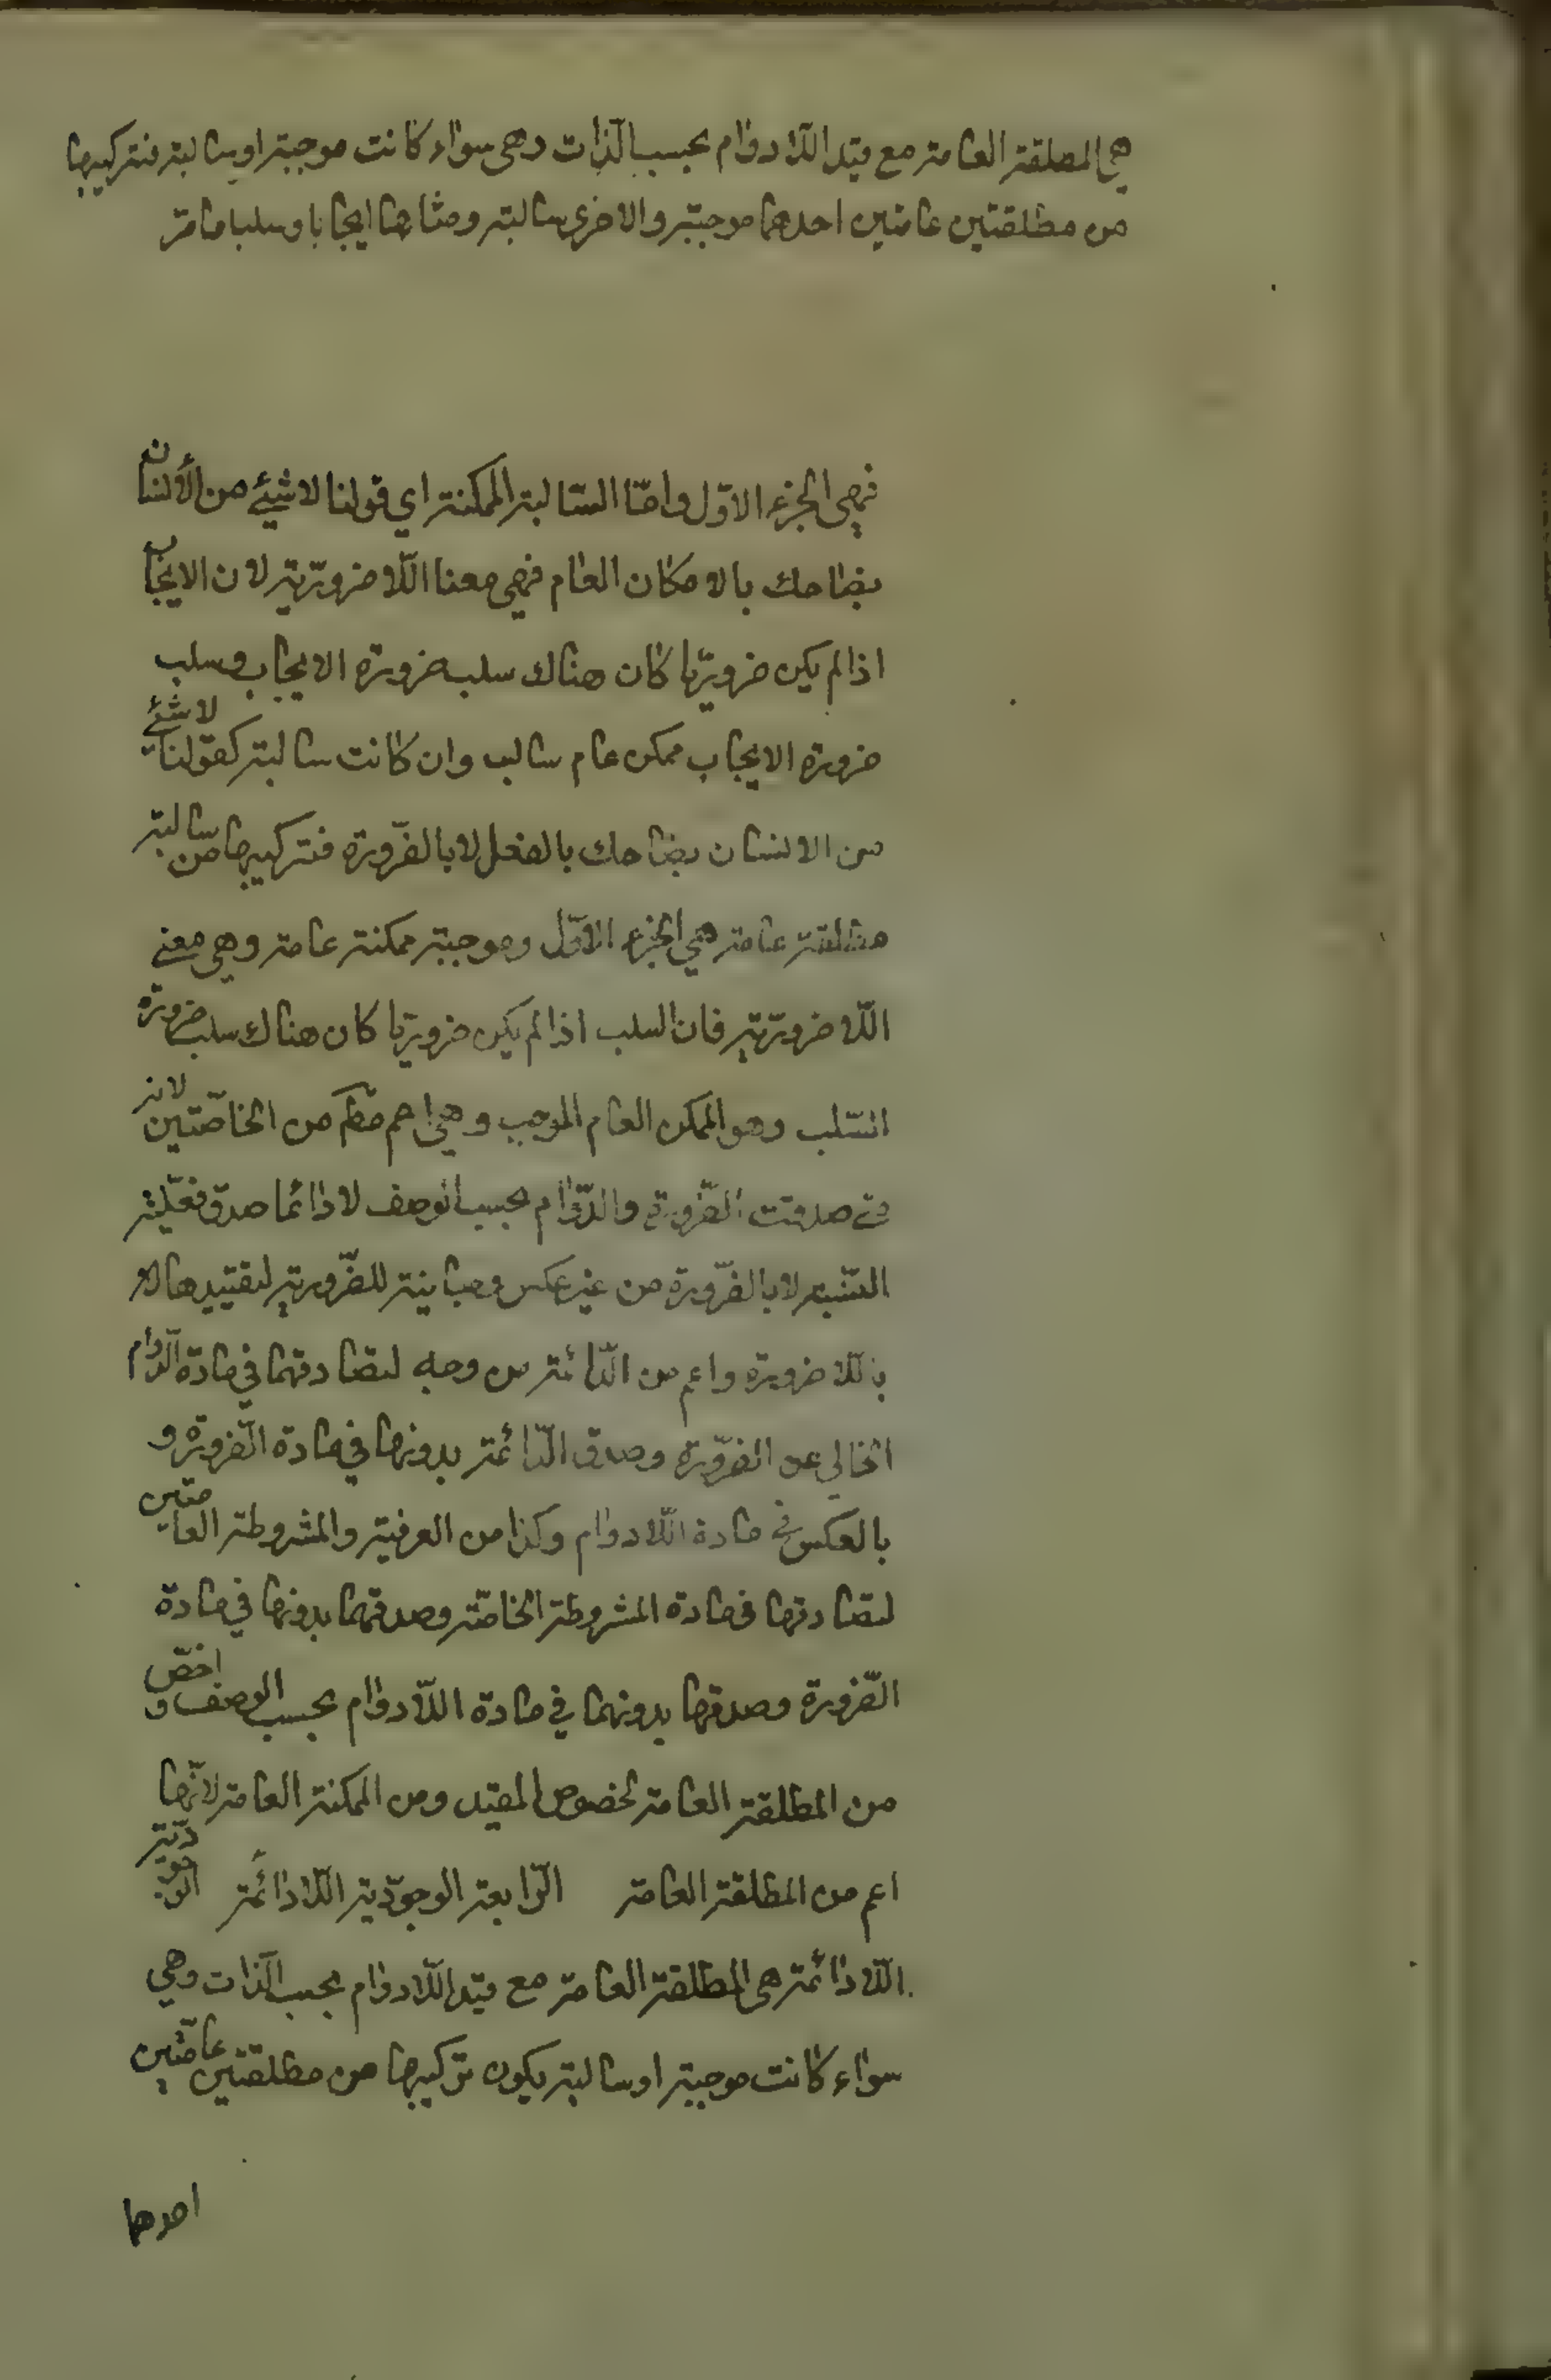 هي المطلقة العامة مع قيد اللادوام بحسب الذات وهي سواء كانت موجبة او سالبة فتركيبها
من مطلقتين عامتين احدهما موجبة والاخرى سالبة ومثالها ايجابا وسلبا ما مر
فهي الجزء الاوّل وامّا السّالبة الممكنة اي قولنا لا شيئ من الأنسان
بضاحك بالامكان العام فهي معنا اللّاضروريّة لان الايجاب
اذا لم يكن ضروريّا كان هناك سلب ضرورة الايجاب وسلب
ضرورة الايجاب ممكن عام سالب وان كانت سالبة كقولنا لا شئ
من الانسان بضاحك بالفعل لا بالضّرورة فتركيبها من سالبة
مطلقة عامة هي الجزء الاوّل وموجبة ممكنة عامة وهي معنى
اللّاضروريّة فان السلب اذا لم يكن ضروريّا كان هناك سلب ضرورة
السّلب وهو الممكن العام الموجب وهي اعم مط من الخاصّتين لانه
متى صدقت الضّرورة والدّوام بحسب الوصف لا دائما صدق فعليّة
النّسبة لا بالضّرورة من غير عكس ومباينة للضّروريّة لتقييدها
باللاضرورة واعم من الدّائمة من وجه لتصادقهما في مادة الدّوام
الخالي عن الضّرورة وصدق الدّائمة بدونها في مادة الضّرورة و
بالعكس في مادة اللّادوام وكذا من العرفية والمشروطة العامتين
لتصادقها في مادة المشروطة الخاصّة وصدقهما بدونها في مادة
الضّرورة وصدقها بدونهما في مادة اللّادوام بحسب الوصف و اخصّ
من المطلقة العامة لخصوص المقيد ومن الممكنة العامة لانّها
اعم من المطلقة العامة الرّابعة الوجوديّة اللّادائمة الوجوديّة
اللّادائمة هي المطلقة العامة مع قيد اللّادوام بحسب الذات وهي
سواء كانت موجبة او سالبة يكون تركيبها من مطلقتين عامّتين
احدهما